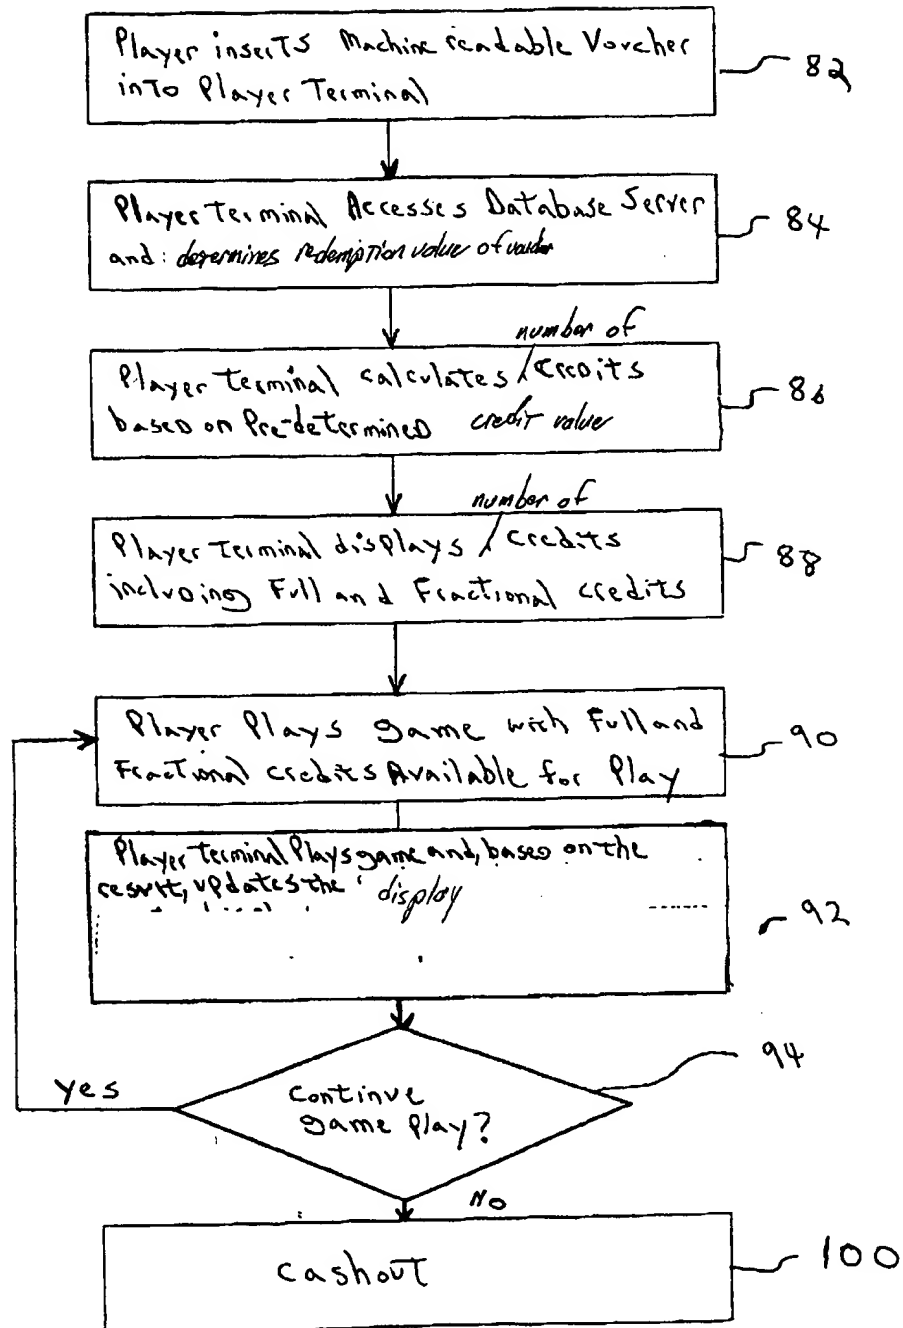 Player inserts Machine readable Voucher
into Player Terminal
82
Player Terminal Accesses Database Server
and: determines redemption value of
84
number of
Player Terminal calculates / Credits
based on Pre-determined credit value
86
number of
Player Terminal displays / credits
including Full and Fractional credits
88
Player Plays game with Full and
Fractional credits Available for Play
90
Player Terminal Plays game and, based on the
result, updates the display
92
Continue
game Play?
94
Yes
No
Cashout
100